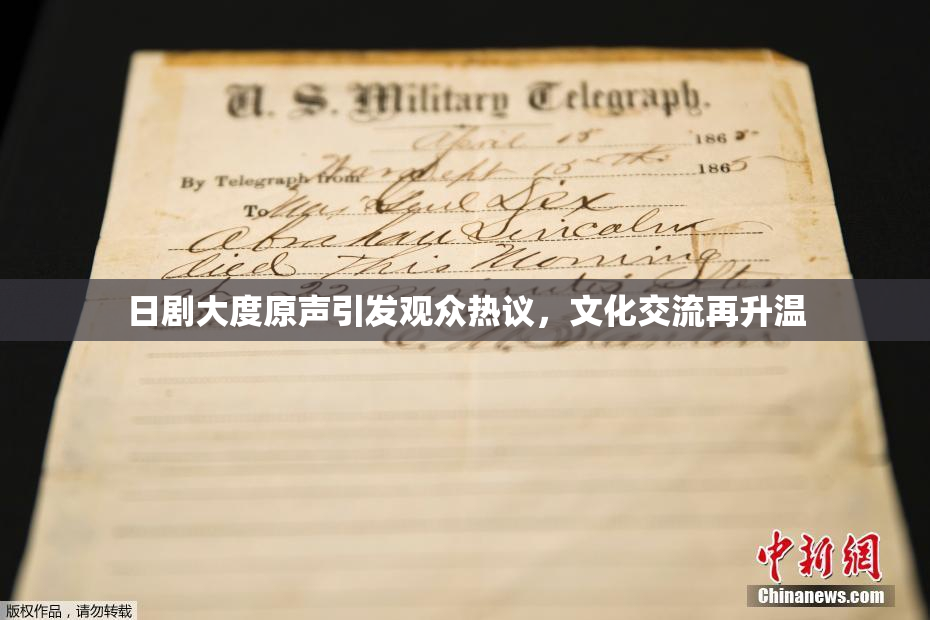 U. S. Military Telegraph.
April 15 1865
By Telegraph from War Dept 15th 1865
To Maj Genl Dix
Abraham Lincoln
died This Morning
at 22 minutes after
日剧大度原声引发观众热议，文化交流再升温
E. M. Stanton
中新網
Chinanews.com
版权作品，请勿转载